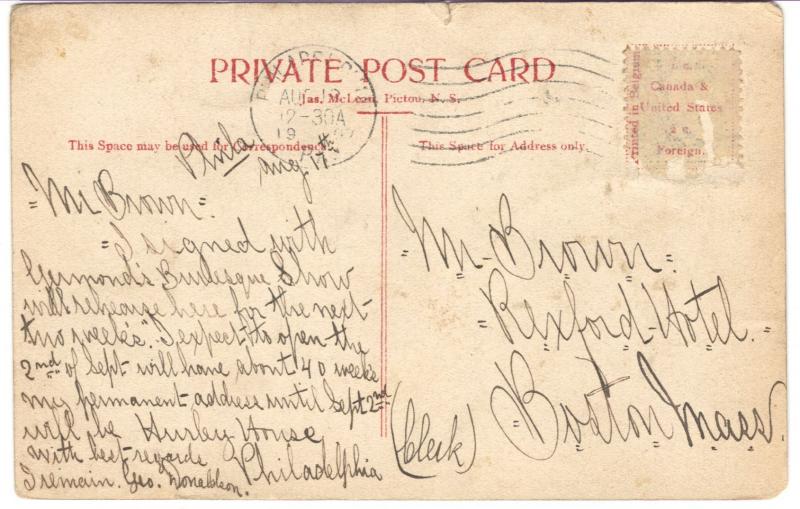 PRIVATE POST CARD
Jas. McLean, Pictou, N. S.
AUG 18
12-30A
This Space may be used for Correspondence.
This Space for Address only.
Printed in Belgium
Canada &
United States
2 c.
Foreign.
Phila
Aug 17th
"Mr Brown"
"I signed with
Burlesque Show
will rehearse here for the next
two weeks". I expect to open the
2nd of Sept will have about 40 weeks
my permanent address until Sept 2nd
will be Hurley House
Philadelphia
with best regards
I remain. Geo. Donaldson.
Mr Brown.
"Rexford Hotel."
"Boston Mass.
(Clerk)